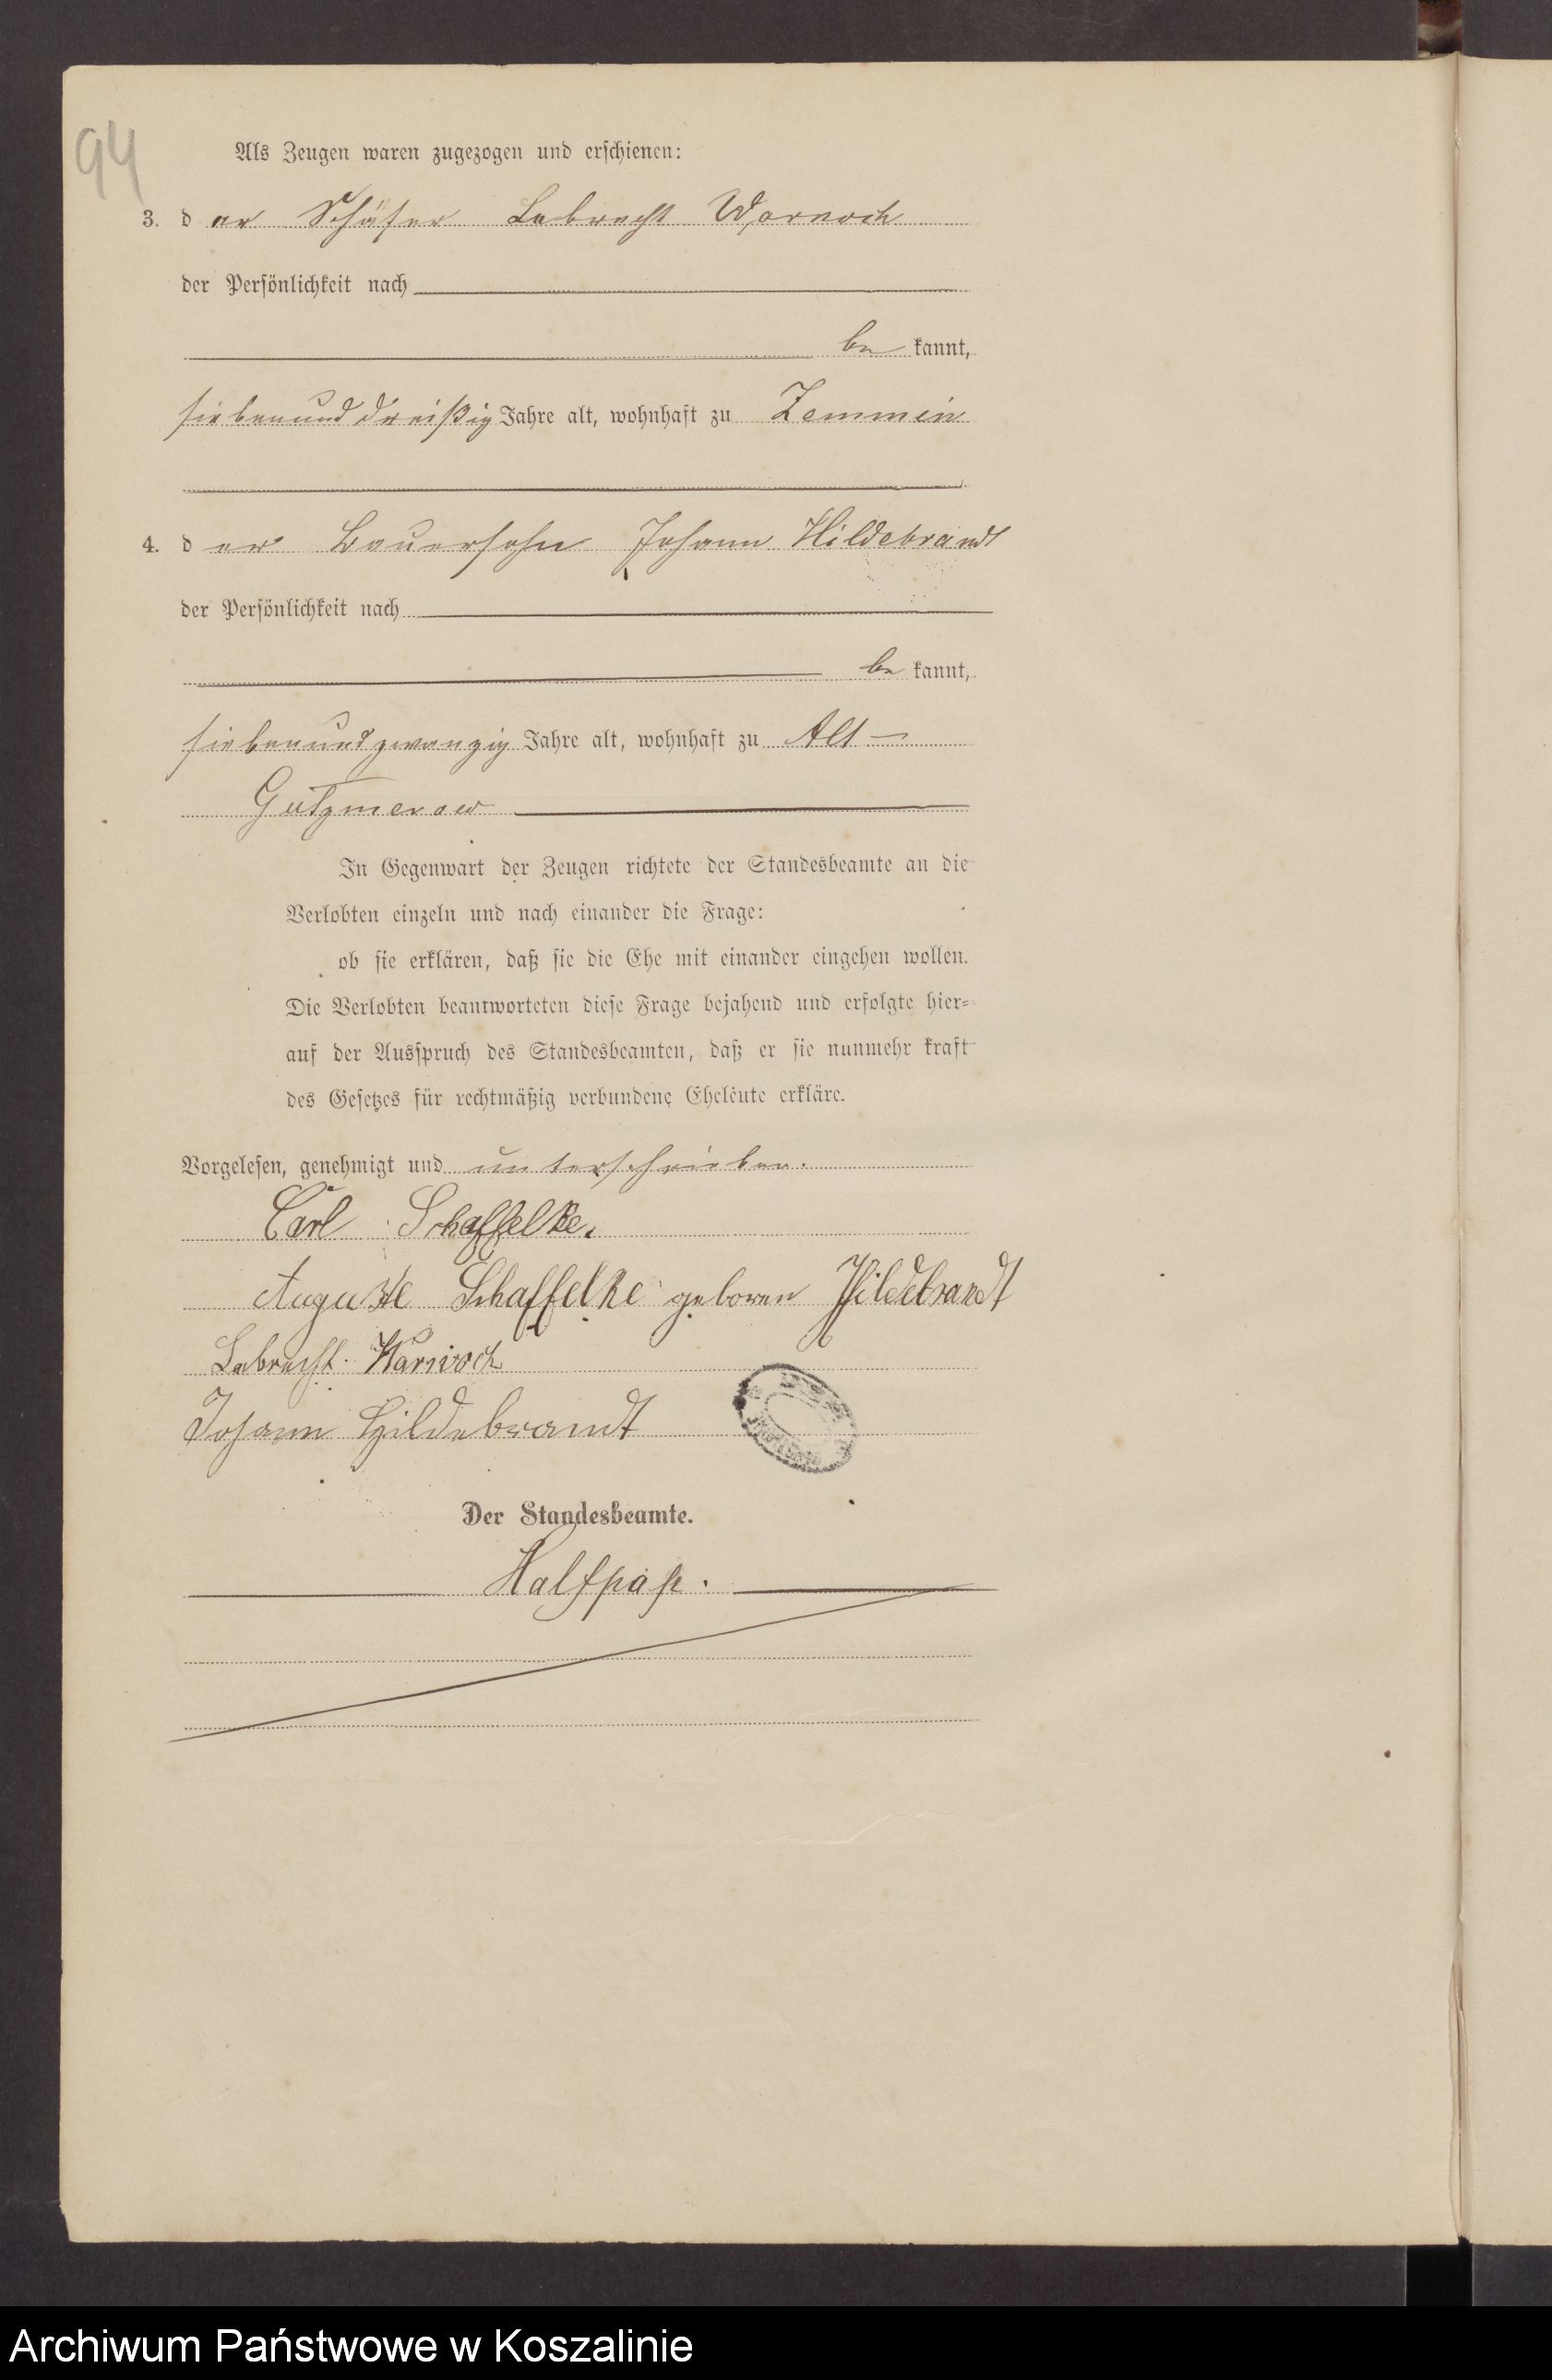 94
Als Zeugen waren zugezogen und erschienen:
3. der Schäfer Lebrecht Warnoch
der Persönlichkeit nach
bekannt,
siebenunddreißig Jahre alt, wohnhaft zu Zemmin
4. der Bauersohn Johann Hildebrandt
der Persönlichkeit nach
bekannt,
siebenundzwanzig Jahre alt, wohnhaft zu Alt-
Gutzmerow
In Gegenwart der Zeugen richtete der Standesbeamte an die
Verlobten einzeln und nach einander die Frage:
ob sie erklären, daß sie die Ehe mit einander eingehen wollen.
Die Verlobten beantworteten diese Frage bejahend und erfolgte hier-
auf der Ausspruch des Standesbeamten, daß er sie nunmehr kraft
des Gesetzes für rechtmäßig verbundene Eheleute erkläre.
Vorgelesen, genehmigt und unterschrieben.
Carl Schaffelke.
Auguste Schaffelke geboren Hildebrandt
Lebrecht Warnoch
Johann Hildebrandt
Der Standesbeamte.
Halfpap.
Archiwum Państwowe w Koszalinie